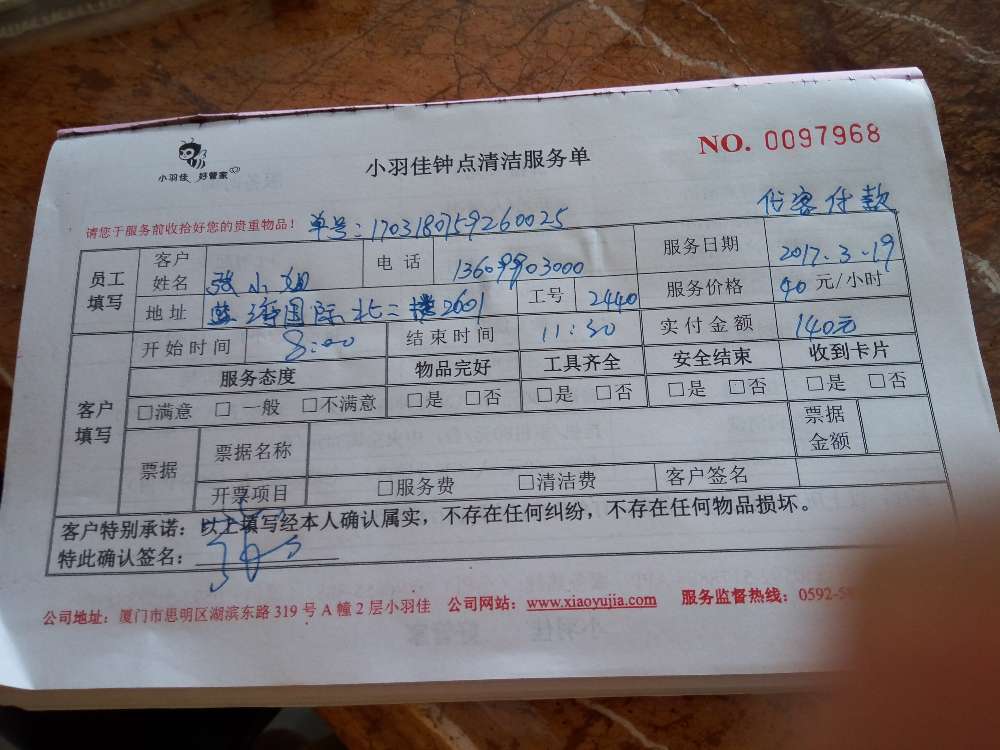 小羽佳 好管家
小羽佳钟点清洁服务单
NO. 0097968
请您于服务前收拾好您的贵重物品！ 单号：1703180759260025 代客付款
员工填写 客户姓名 张小姐 电话 13609903000 服务日期 2017.3.19
地址 蓝湾国际北二楼2601 工号 2440 服务价格 40元/小时
客户填写 开始时间 8:00 结束时间 11:30 实付金额 140元
服务态度 物品完好 工具齐全 安全结束 收到卡片
□满意 □一般 □不满意 □是 □否 □是 □否 □是 □否 □是 □否
票据 票据名称 票据金额
开票项目 □服务费 □清洁费 客户签名
客户特别承诺：以上填写经本人确认属实，不存在任何纠纷，不存在任何物品损坏。
特此确认签名：
公司地址：厦门市思明区湖滨东路319号A幢2层小羽佳 公司网站：www.xiaoyujia.com 服务监督热线：0592-58